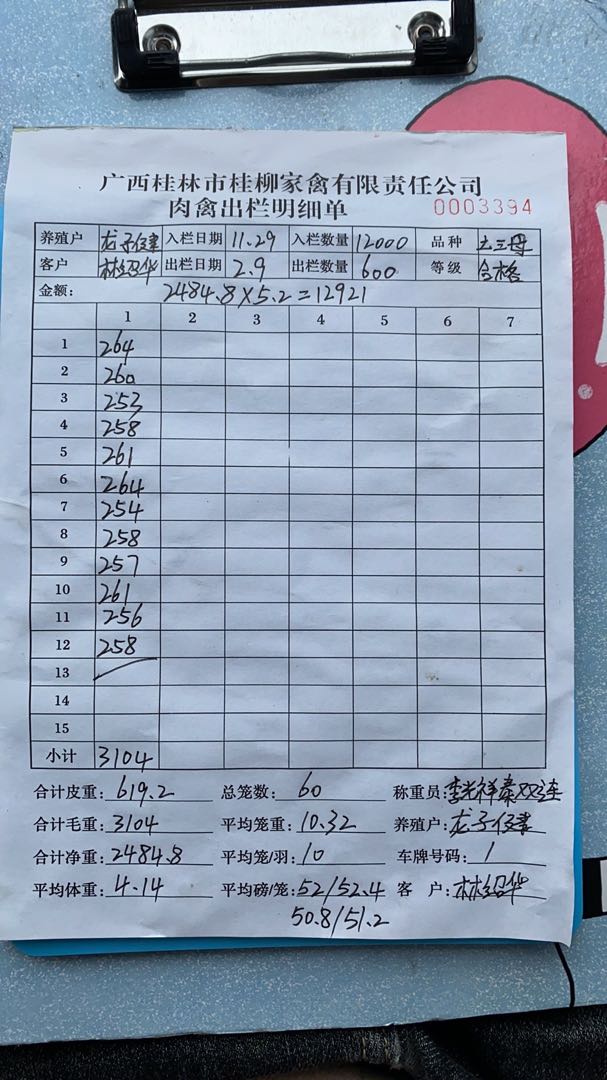 广西桂林市桂柳家禽有限责任公司
肉禽出栏明细单 0003394
养殖户 龙子 入栏日期 11.29 入栏数量 12000 品种 土三母
客户 林绍华 出栏日期 2.9 出栏数量 600 等级 合格
金额: 2484.8×5.2=12921
1 2 3 4 5 6 7
1 264
2 260
3 253
4 258
5 261
6 264
7 254
8 258
9 257
10 261
11 256
12 258
13
14
15
小计 3104
合计皮重: 619.2 总笼数: 60 称重员:
合计毛重: 3104 平均笼重: 10.32 养殖户: 龙子
合计净重: 2484.8 平均笼/羽: 10 车牌号码: 1
平均体重: 4.14 平均磅/笼: 52/52.4 客 户: 林绍华
50.8/51.2